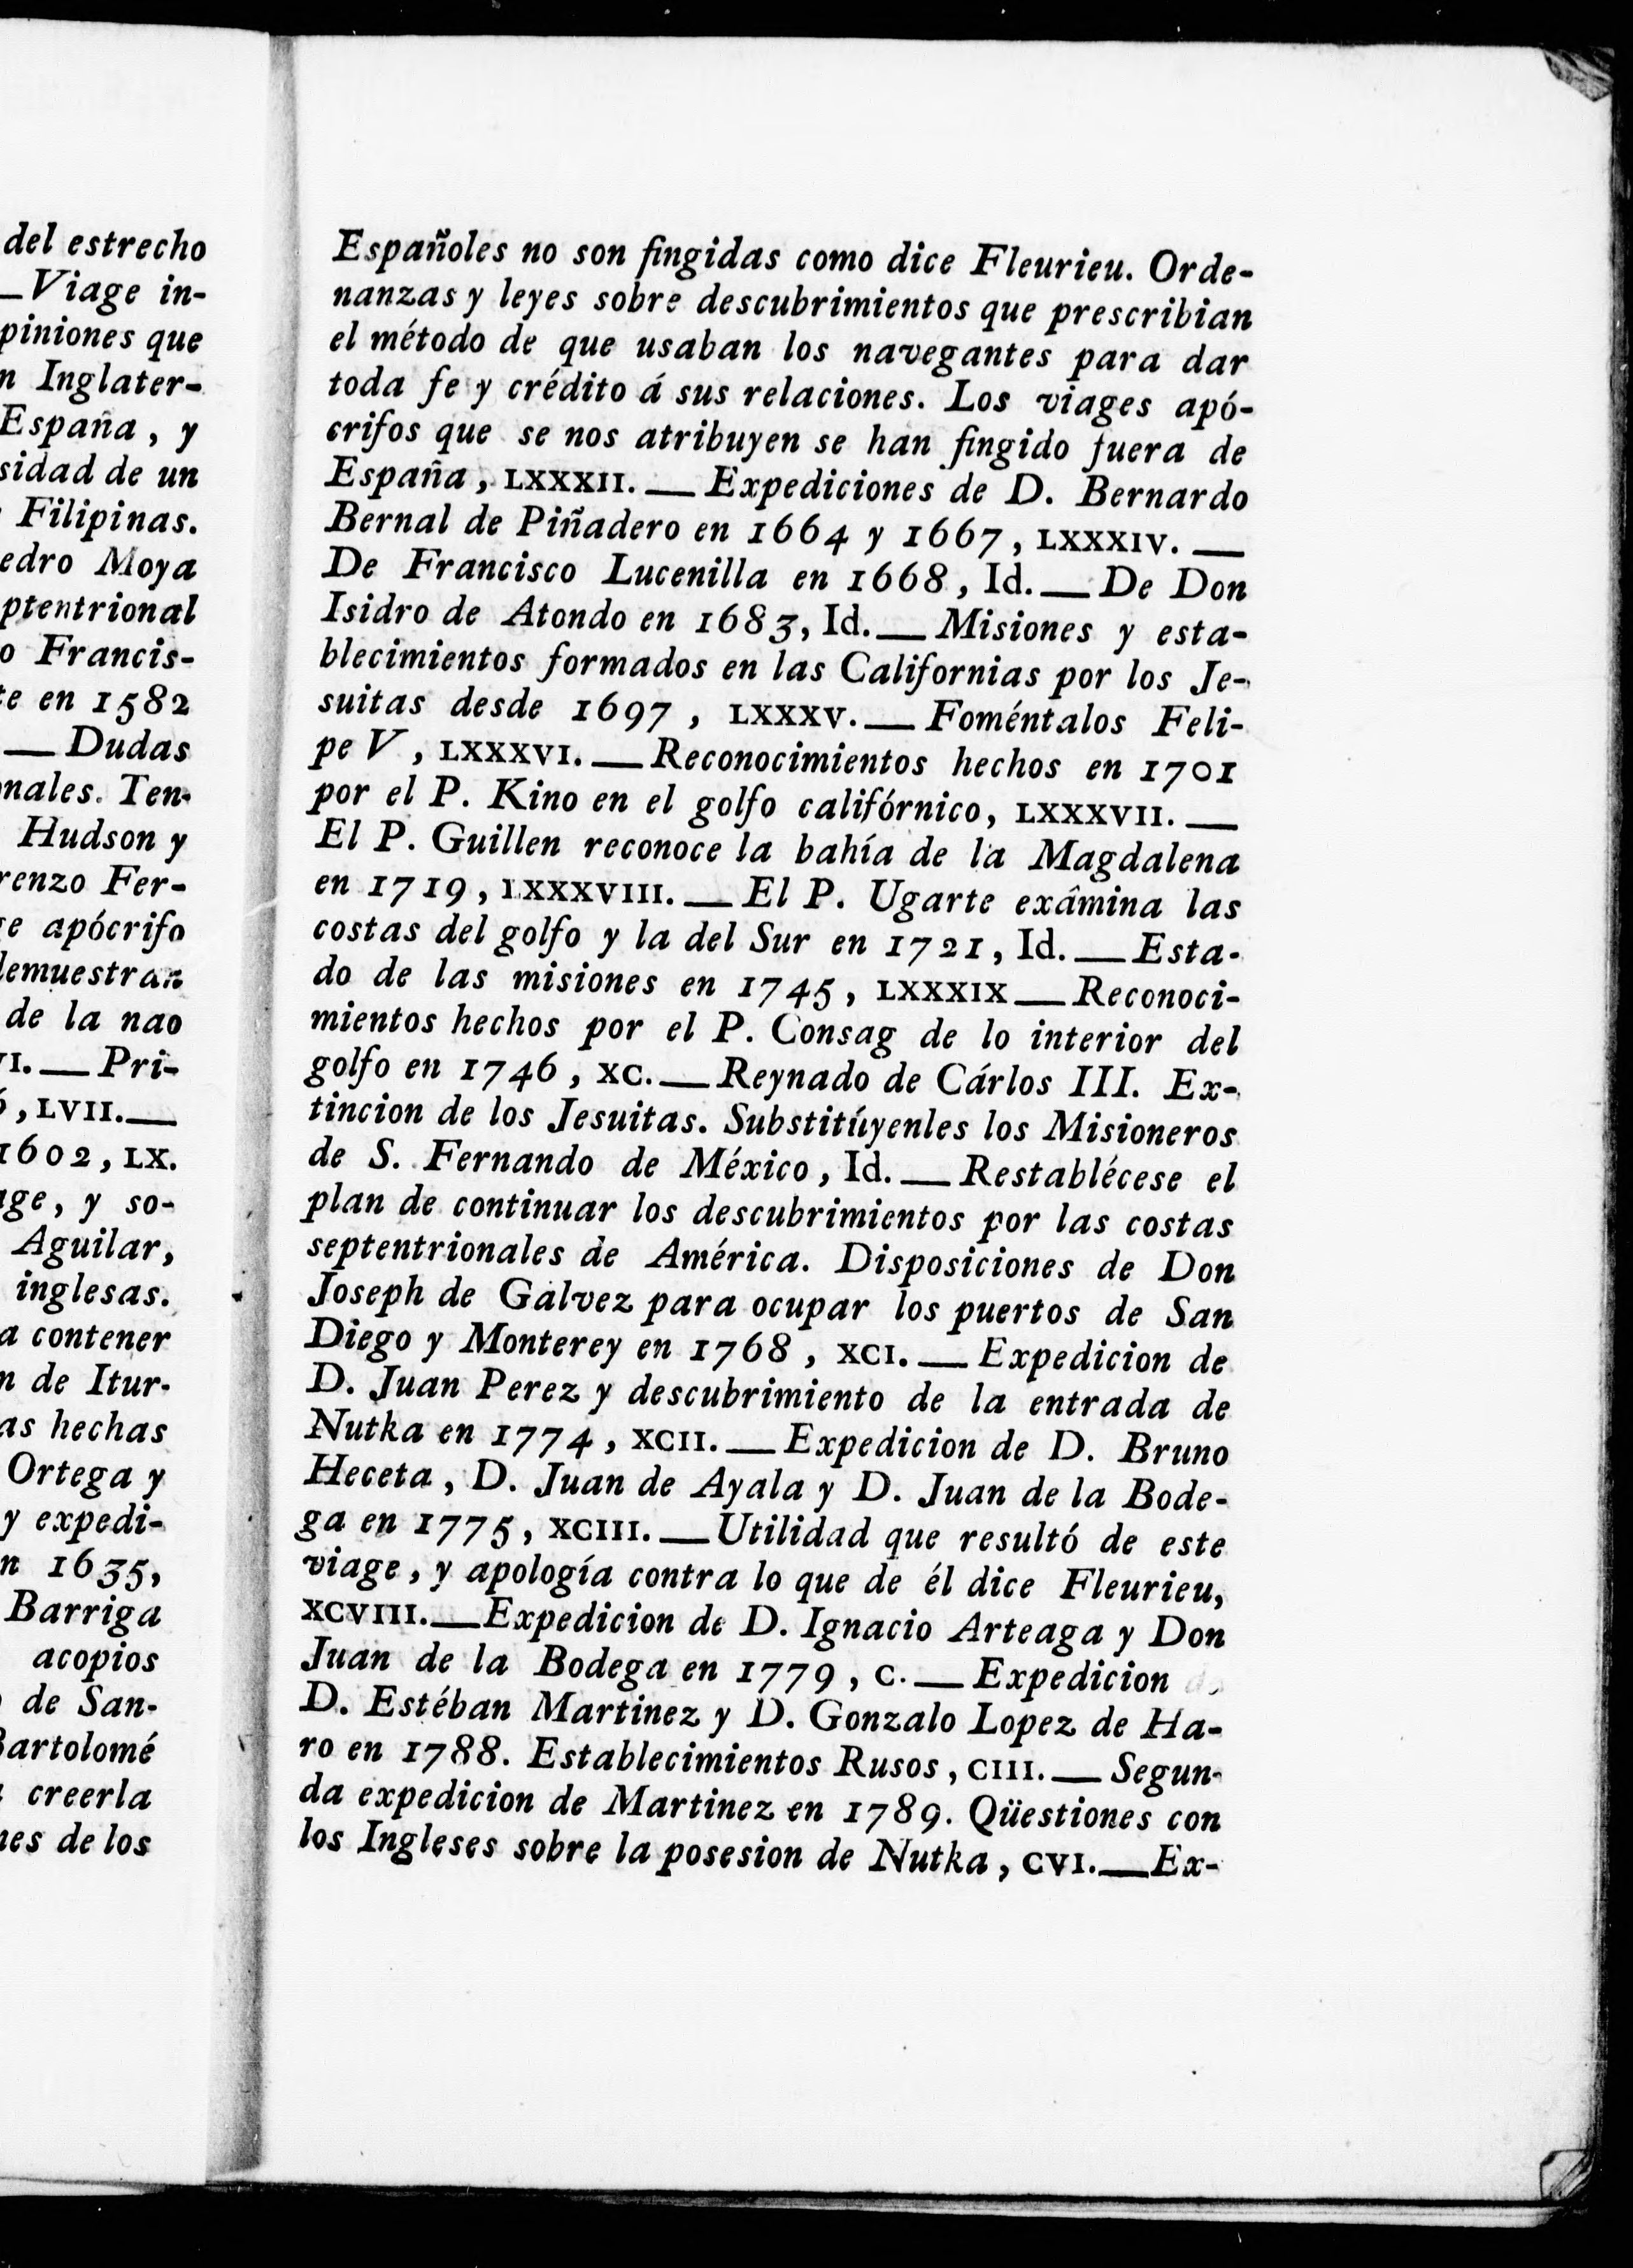 del estrecho
—Viage in-
piniones que
n Inglater-
España, y
sidad de un
Filipinas.
edro Moya
ptentrional
o Francis-
te en 1582
— Dudas
nales. Ten-
Hudson y
renzo Fer-
ge apócrifo
demuestran
de la nao
VI.—Pri-
, LVII.—
1602, LX.
age, y so-
Aguilar,
inglesas.
a contener
n de Itur-
as hechas
Ortega y
y expedi-
n 1635,
Barriga
acopios
de San-
Bartolomé
creerla
nes de los
Españoles no son fingidas como dice Fleurieu. Orde-
nanzas y leyes sobre descubrimientos que prescribian
el método de que usaban los navegantes para dar
toda fe y crédito á sus relaciones. Los viages apó-
crifos que se nos atribuyen se han fingido fuera de
España, LXXXII. — Expediciones de D. Bernardo
Bernal de Piñadero en 1664 y 1667, LXXXIV. —
De Francisco Lucenilla en 1668, Id. — De Don
Isidro de Atondo en 1683, Id. — Misiones y esta-
blecimientos formados en las Californias por los Je-
suitas desde 1697, LXXXV. — Foméntalos Feli-
pe V, LXXXVI. — Reconocimientos hechos en 1701
por el P. Kino en el golfo califórnico, LXXXVII. —
El P. Guillen reconoce la bahía de la Magdalena
en 1719, LXXXVIII. — El P. Ugarte exâmina las
costas del golfo y la del Sur en 1721, Id. — Esta-
do de las misiones en 1745, LXXXIX — Reconoci-
mientos hechos por el P. Consag de lo interior del
golfo en 1746, XC. — Reynado de Cárlos III. Ex-
tincion de los Jesuitas. Substitúyenles los Misioneros
de S. Fernando de México, Id. — Restablécese el
plan de continuar los descubrimientos por las costas
septentrionales de América. Disposiciones de Don
Joseph de Galvez para ocupar los puertos de San
Diego y Monterey en 1768, XCI. — Expedicion de
D. Juan Perez y descubrimiento de la entrada de
Nutka en 1774, XCII. — Expedicion de D. Bruno
Heceta, D. Juan de Ayala y D. Juan de la Bode-
ga en 1775, XCIII. — Utilidad que resultó de este
viage, y apología contra lo que de él dice Fleurieu,
XCVIII. — Expedicion de D. Ignacio Arteaga y Don
Juan de la Bodega en 1779, C. — Expedicion
D. Estéban Martinez y D. Gonzalo Lopez de Ha-
ro en 1788. Establecimientos Rusos, CIII. — Segun-
da expedicion de Martinez en 1789. Qüestiones con
los Ingleses sobre la posesion de Nutka, CVI. — Ex-